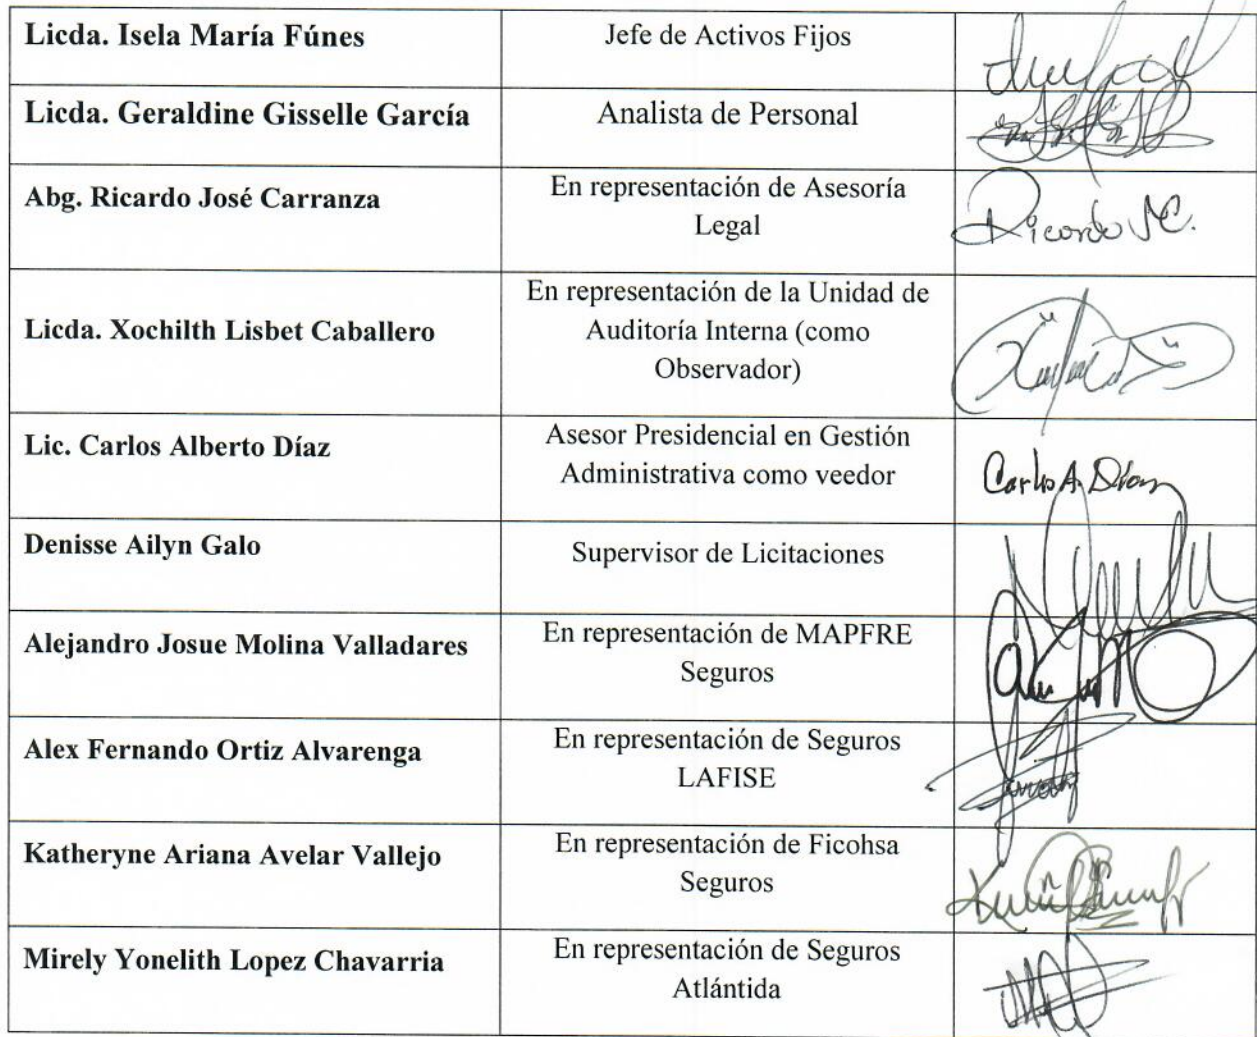 Licda. Isela María Fúnes
Jefe de Activos Fijos
Licda. Geraldine Gisselle García
Analista de Personal
Abg. Ricardo José Carranza
En representación de Asesoría
Legal
Ricardo JC.
Licda. Xochilth Lisbet Caballero
En representación de la Unidad de
Auditoría Interna (como
Observador)
Lic. Carlos Alberto Díaz
Asesor Presidencial en Gestión
Administrativa como veedor
Carlos A. Díaz
Denisse Ailyn Galo
Supervisor de Licitaciones
Alejandro Josue Molina Valladares
En representación de MAPFRE
Seguros
Alex Fernando Ortiz Alvarenga
En representación de Seguros
LAFISE
Katheryne Ariana Avelar Vallejo
En representación de Ficohsa
Seguros
Mirely Yonelith Lopez Chavarria
En representación de Seguros
Atlántida